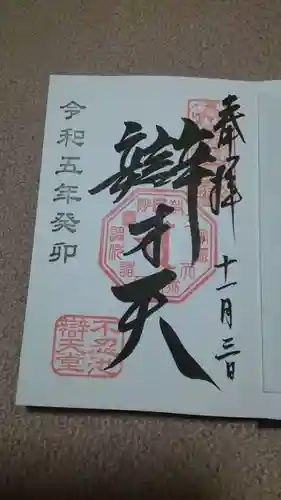 奉拝
十一月三日
辯才天
令和五年癸卯
不忍池
辯天堂